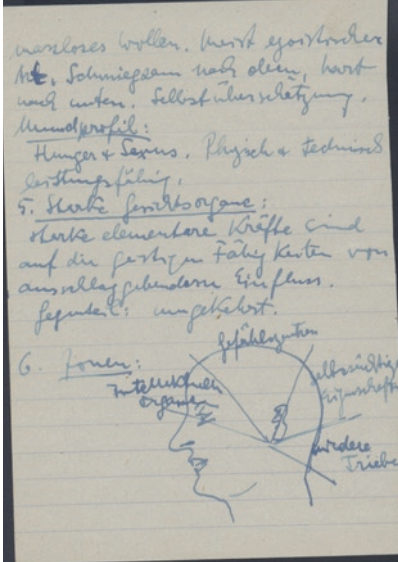 massloses Wollen. Meist egoistischer
Art. Schmiegsam nach oben, hart
nach unten. Selbstüberschätzung.
Mundprofil:
Hunger & Sexus. Physisch & technisch
leistungsfähig.
5. Starke Gesichtsorgane:
Starke elementare Kräfte sind
auf die geistigen Fähigkeiten von
ausschlaggebendem Einfluss.
Gegenteil: umgekehrt.
6. Zonen:
Gefühlszentren
Intellektuelle
Organe
selbstsüchtige
Eigenschaften
niedere
Triebe